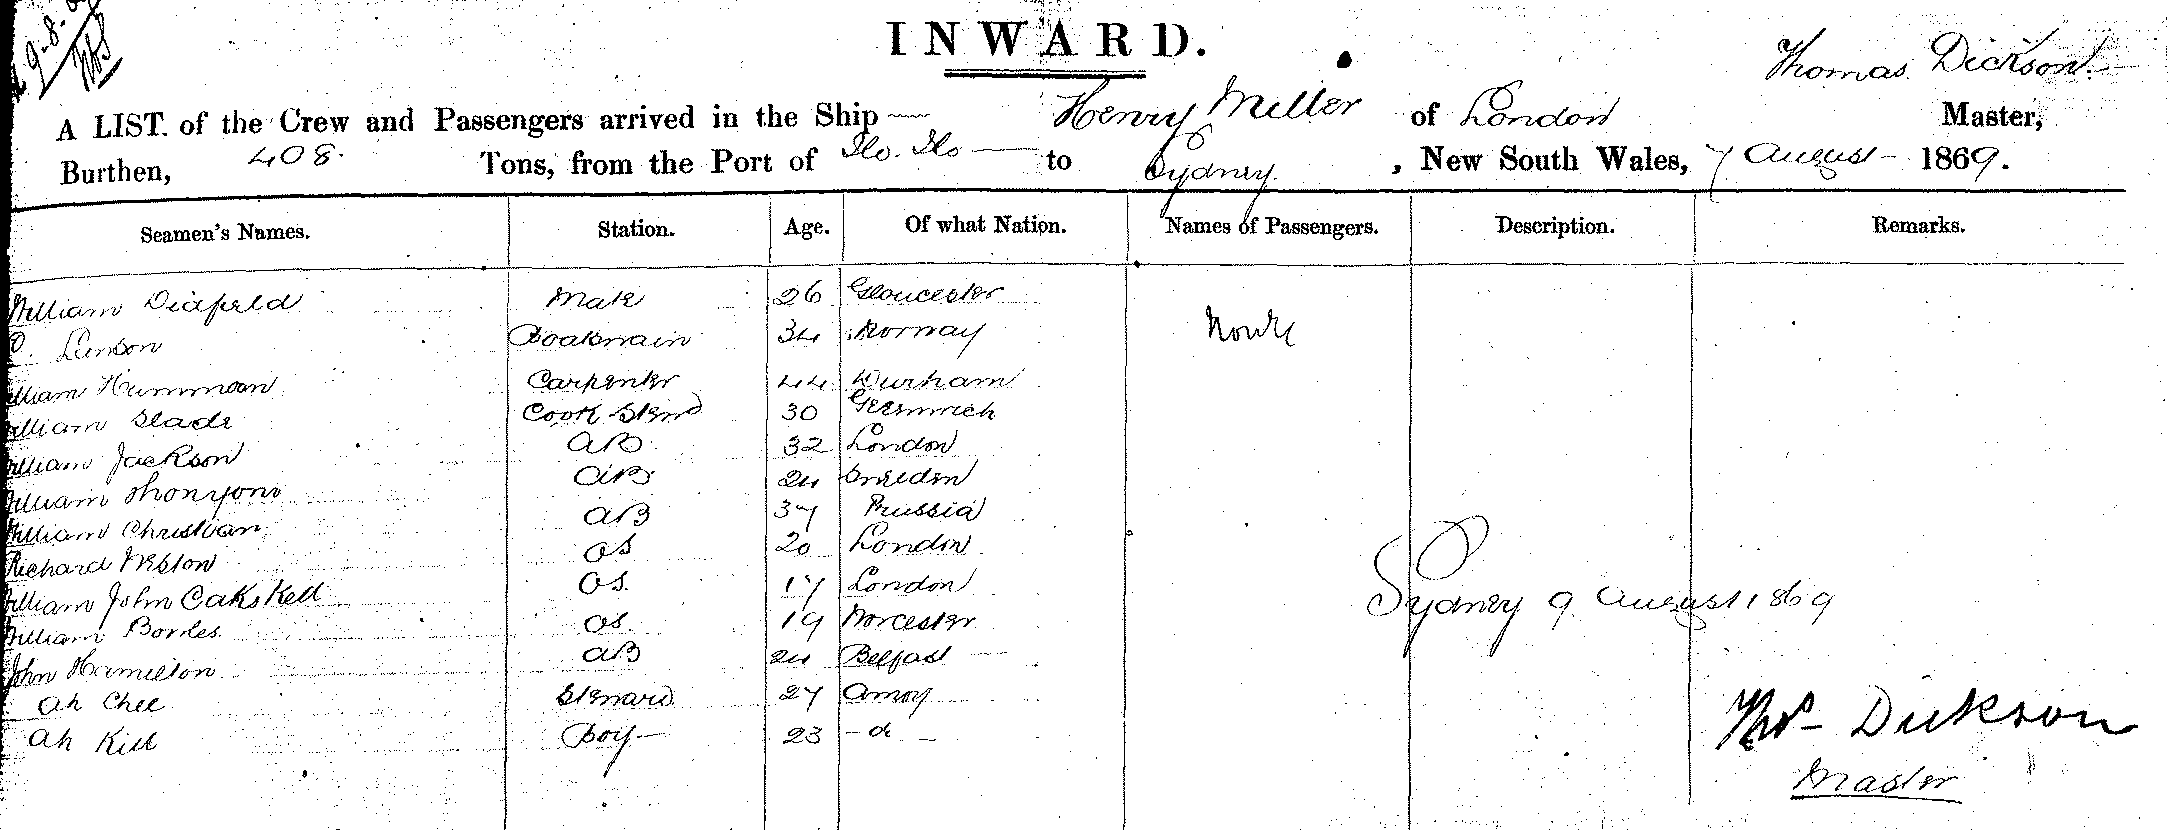 9-8-
INWARD.
Thomas Dickson.
A LIST. of the Crew and Passengers arrived in the Ship Henry Miller of London Master,
Burthen, 408. Tons, from the Port of Ilo. Ilo to Sydney. , New South Wales, 7 August 1869.
Seamen's Names. Station. Age. Of what Nation. Names of Passengers. Description. Remarks.
William Mate 26 Gloucester
Boatswain 34 Norway None
William Carpenter 44 Durham
William Slade Cook Stewd 30 Greenwich
William Jackson AB 32 London
William AB 24
William Christian AB 37 Prussia
Richard Weston OS 20 London
William John OS. 17 London
William Bowles OS. 19 Worcester
John Hamilton AB 24 Belfast
Ah Chee Steward 27 Amoy
Ah Boy 23 - do -
Sydney 9 August 1869
Thos Dickson
Master